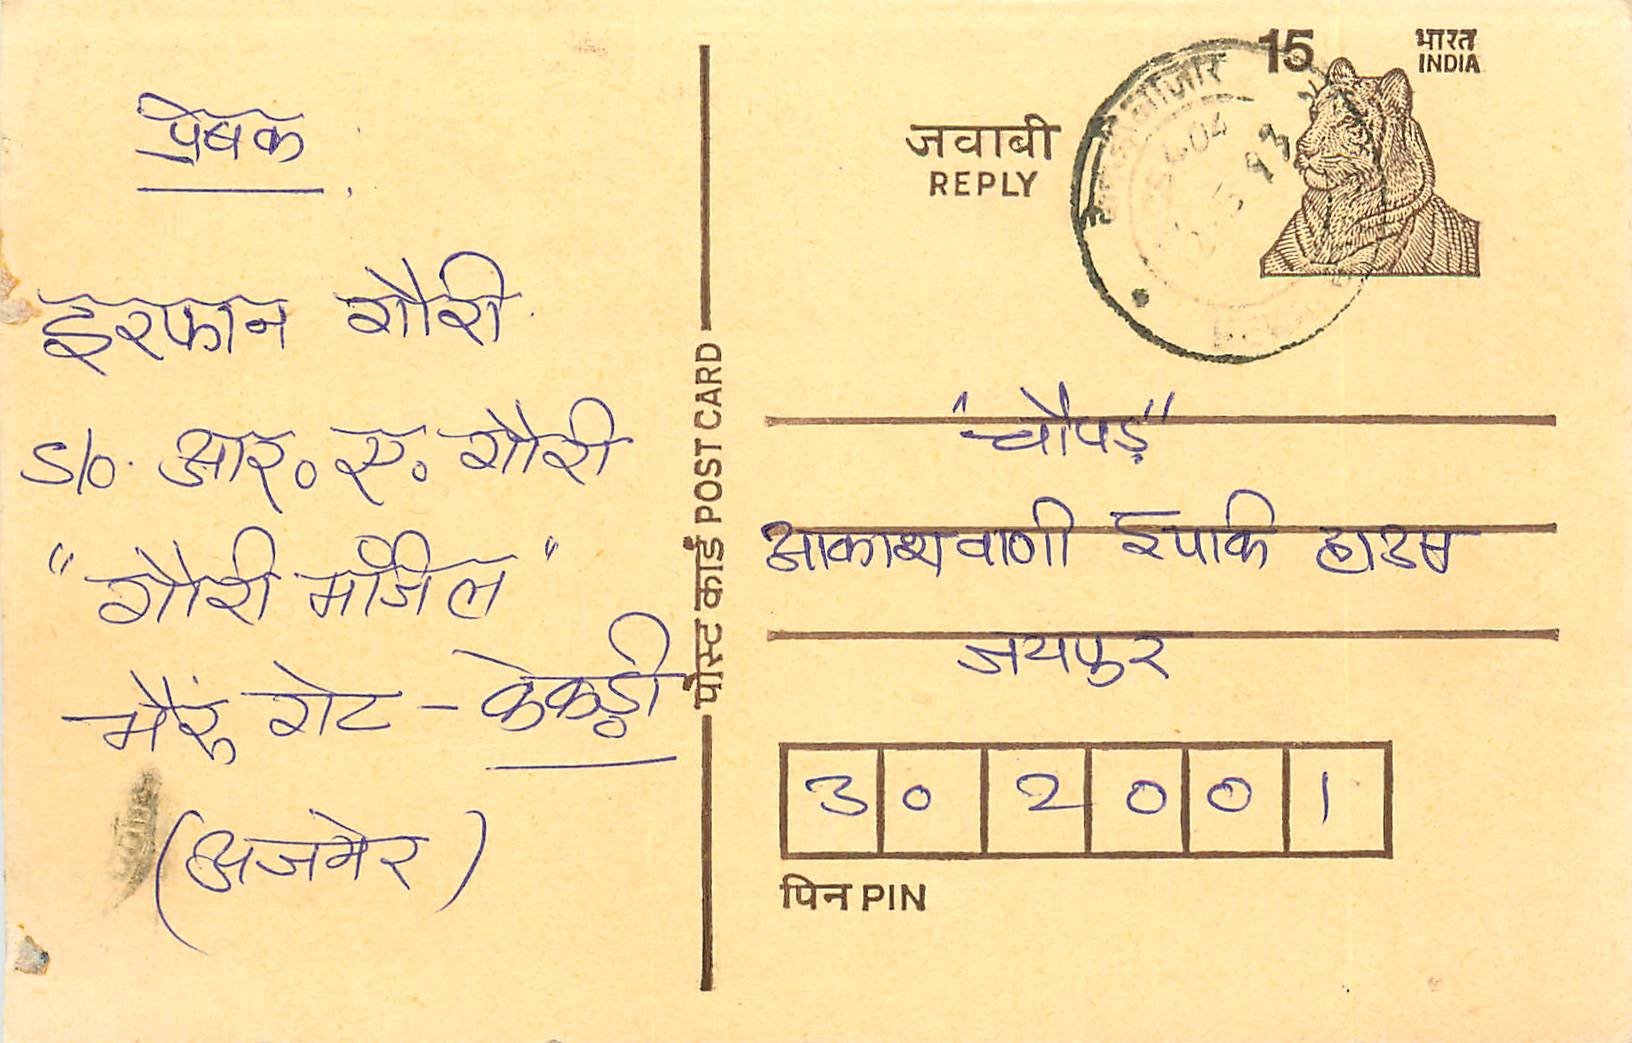 प्रेषक
इरफान गौरी
S/o. आर. ए. गौरी
"गौरी मंजिल"
भैरुं गेट - केकड़ी
(अजमेर)
पोस्ट कार्ड POST CARD
15
भारत
INDIA
जवाबी
REPLY
"चौपड़"
आकाशवाणी ईपार्क हाउस
जयपुर
302001
पिन PIN